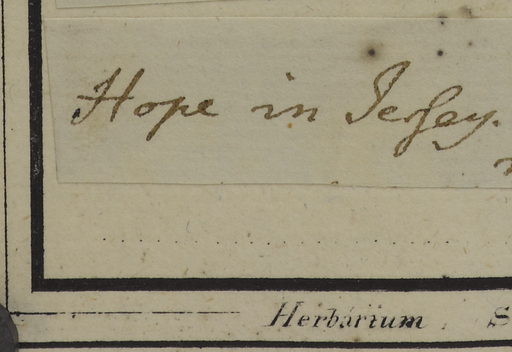 Hope in Jersey.
Herbarium